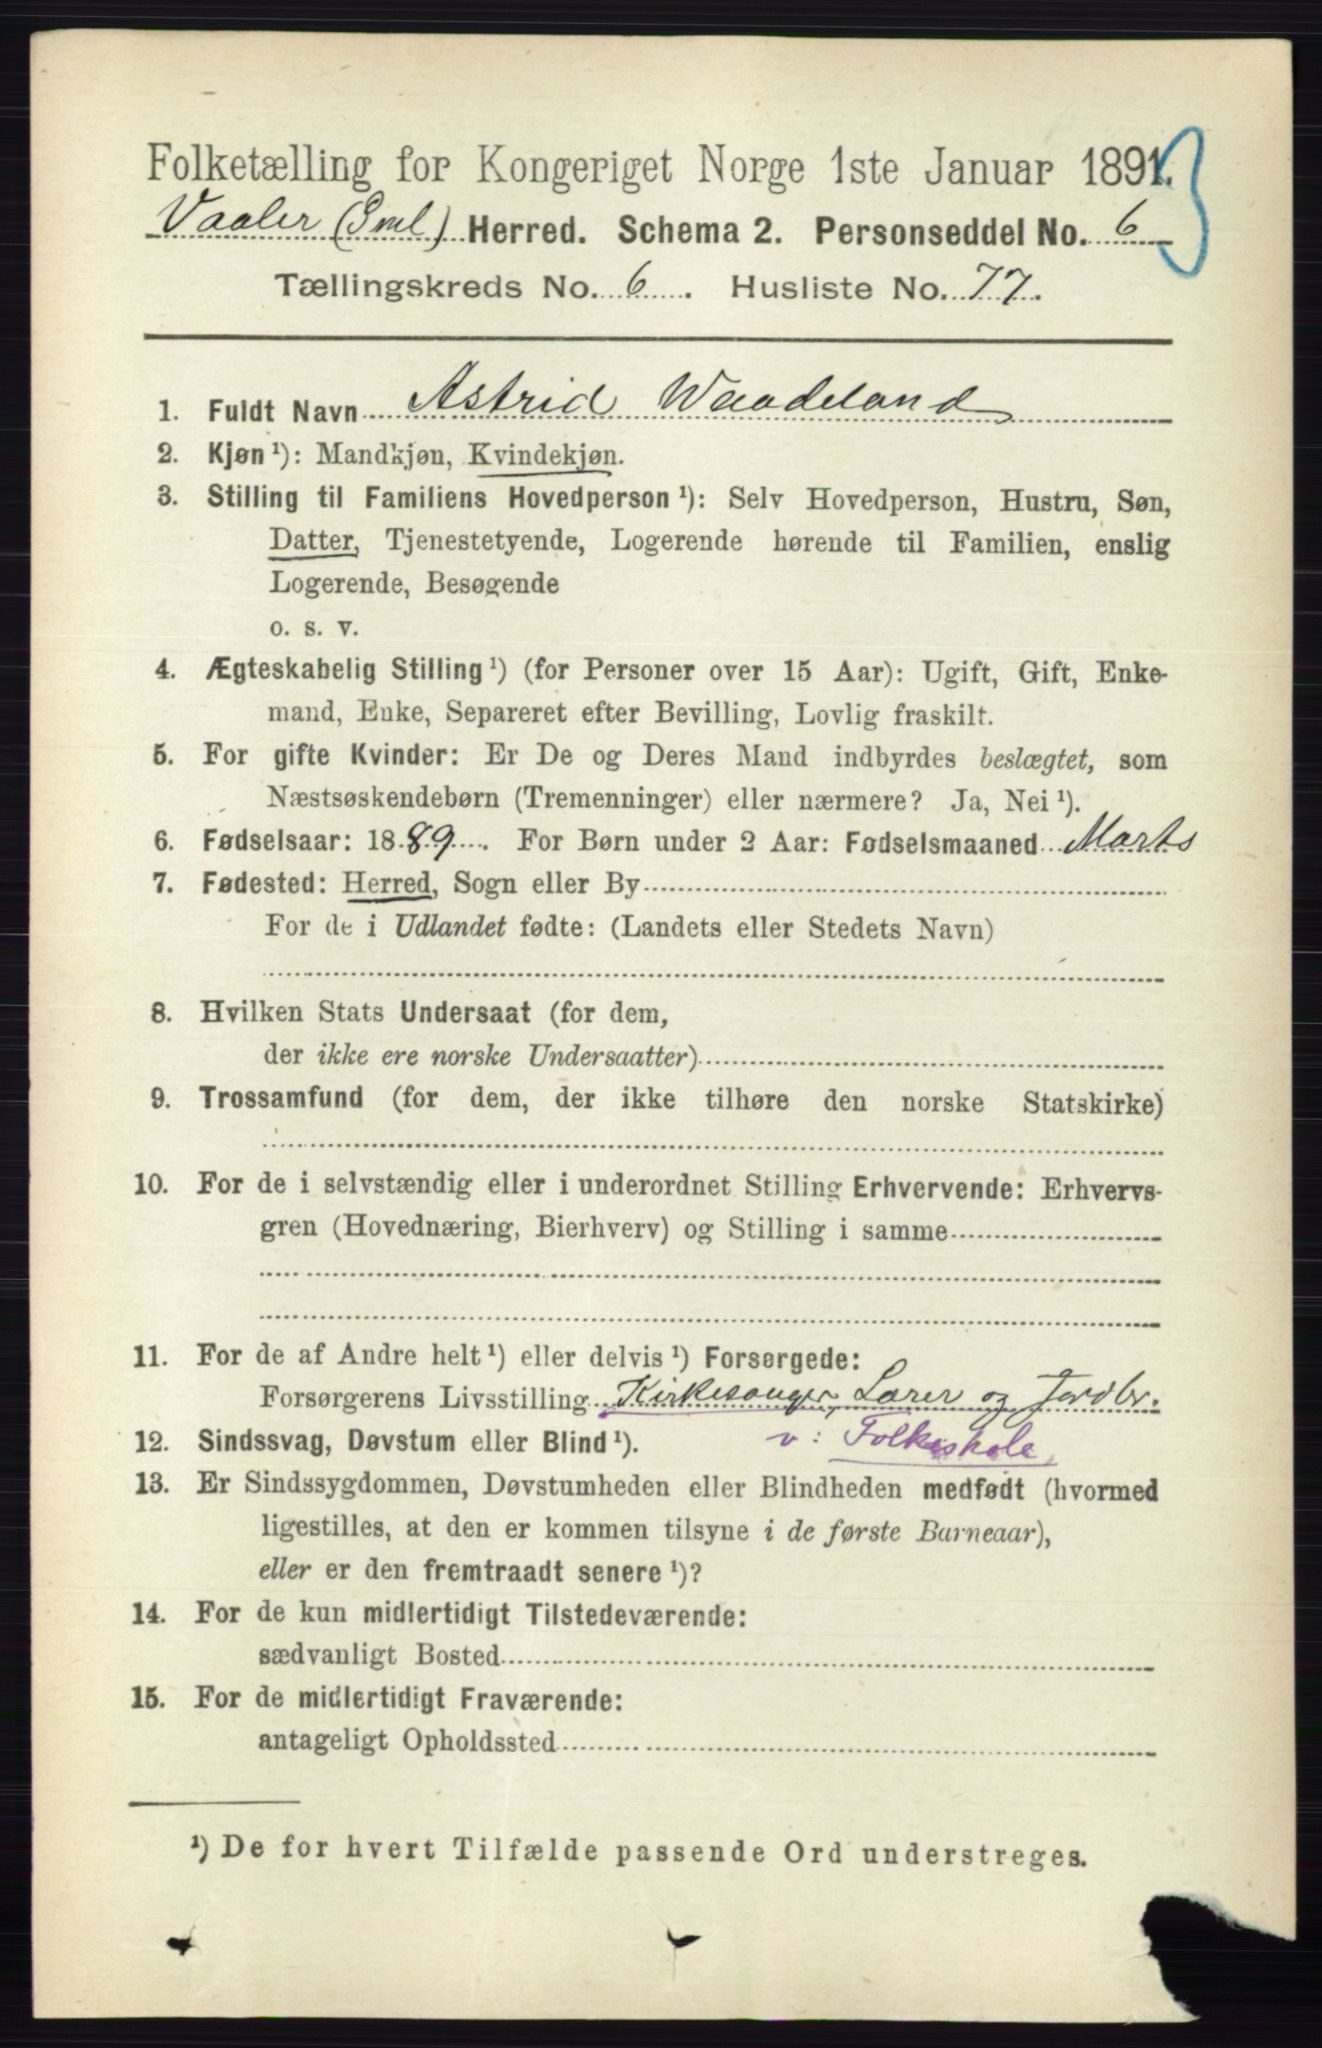 Folketælling for Kongeriget Norge 1ste Januar 1891.
3
Vaaler (Sml) Herred. Schema 2. Personseddel No. 6
Tællingskreds No. 6. Husliste No. 77.
1. Fuldt Navn Astrid Waadeland
2. Kjøn ¹): Mandkjøn, Kvindekjøn.
3. Stilling til Familiens Hovedperson ¹): Selv Hovedperson, Hustru, Søn,
Datter, Tjenestetyende, Logerende hørende til Familien, enslig
Logerende, Besøgende
o. s. v.
4. Ægteskabelig Stilling ¹) (for Personer over 15 Aar): Ugift, Gift, Enke-
mand, Enke, Separeret efter Bevilling, Lovlig fraskilt.
5. For gifte Kvinder: Er De og Deres Mand indbyrdes beslægtet, som
Næstsøskendebørn (Tremenninger) eller nærmere? Ja, Nei ¹).
6. Fødselsaar: 1889. For Børn under 2 Aar: Fødselsmaaned Marts
7. Fødested: Herred, Sogn eller By
For de i Udlandet fødte: (Landets eller Stedets Navn)
8. Hvilken Stats Undersaat (for dem,
der ikke ere norske Undersaatter)
9. Trossamfund (for dem, der ikke tilhøre den norske Statskirke)
10. For de i selvstændig eller i underordnet Stilling Erhvervende: Erhvervs-
gren (Hovednæring, Bierhverv) og Stilling i samme
11. For de af Andre helt ¹) eller delvis ¹) Forsørgede:
Forsørgerens Livsstilling Kirkesanger, Lærer og Jordbr.
12. Sindssvag, Døvstum eller Blind ¹). v: Folkeskole
13. Er Sindssygdommen, Døvstumheden eller Blindheden medfødt (hvormed
ligestilles, at den er kommen tilsyne i de første Barneaar),
eller er den fremtraadt senere ¹)?
14. For de kun midlertidigt Tilstedeværende:
sædvanligt Bosted
15. For de midlertidigt Fraværende:
antageligt Opholdssted
¹) De for hvert Tilfælde passende Ord understreges.